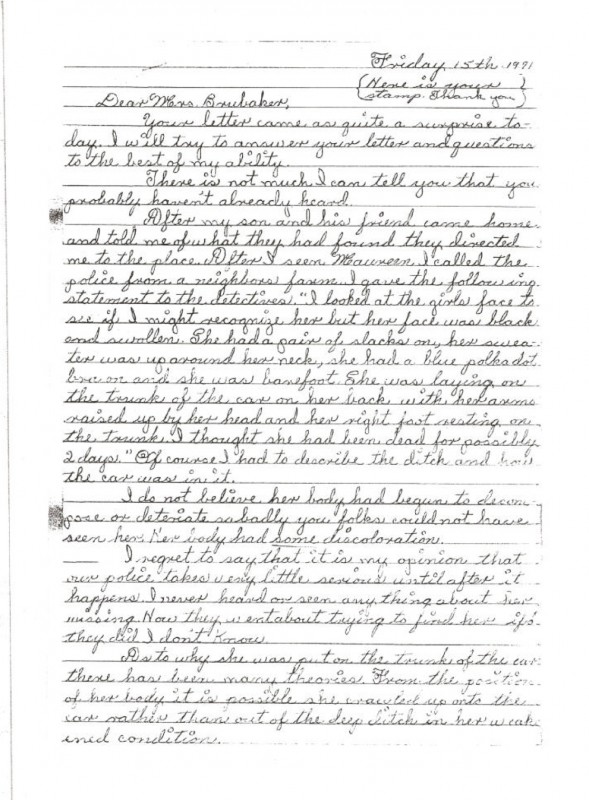 Friday, 15th 1971
(Here is your
stamp. Thank you)
Dear Mrs. Brubaker,
Your letter came as quite a surprise to-
day. I will try to answer your letter and questions
to the best of my ability.
There is not much I can tell you that you
probably haven't already heard.
After my son and his friend came home
and told me of what they had found they directed
me to the place. After I seen Maureen I called the
police from a neighbors farm. I gave the following
statement to the detectives. "I looked at the girls face to
see if I might recognize her but her face was black
and swollen. She had a pair of slacks on, her swea-
ter was up around her neck, she had a blue polkadot
bra on and she was barefoot. She was laying on
the trunk of the car on her back with her arms
raised up by her head and her right foot resting on
the trunk. I thought she had been dead for possibly
2 days." Of course I had to describe the ditch and how
the car was in it.
I do not believe her body had begun to decom-
pose or deteriate so badly you folks could not have
seen her. Her body had some discoloration.
I regret to say that it is my opinion that
our police takes very little serious until after it
happens. I never heard or seen any thing about her
missing. How they went about trying to find her if
they did I don't know.
As to why she was put on the trunk of the car
there has been many theories. From the position
of her body it is possible she crawled up onto the
car rather than out of the deep ditch in her weak
ened condition.